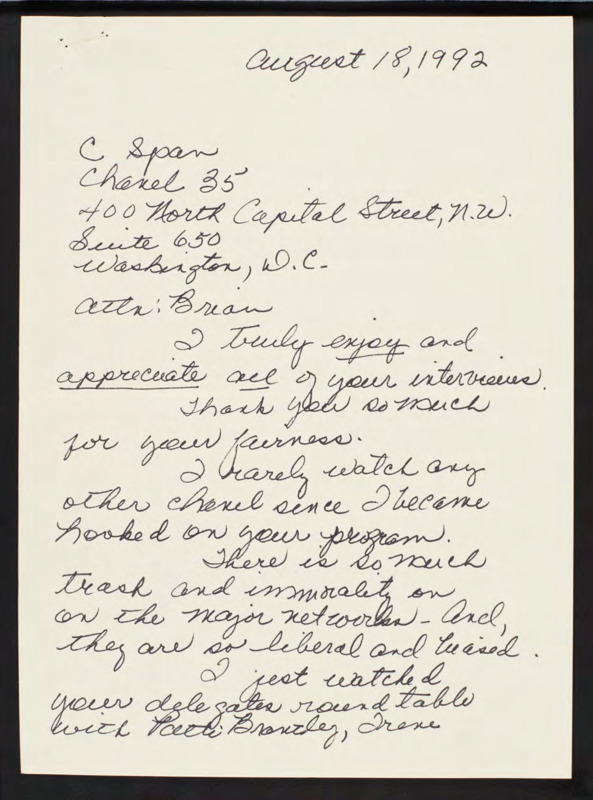 August 18, 1992
C Span
Chanel 35
400 North Capital Street, N.W.
Suite 650
Washington, D.C.
Attn: Brian
I truly enjoy and
appreciate all of your interviews.
Thank you so much
for your fairness.
I rarely watch any
other chanel since I became
hooked on your program.
There is so much
trash and immorality on
on the major networks - And,
they are so liberal and biased.
I just watched
your delegates round table
with Patti Brantley, Irene